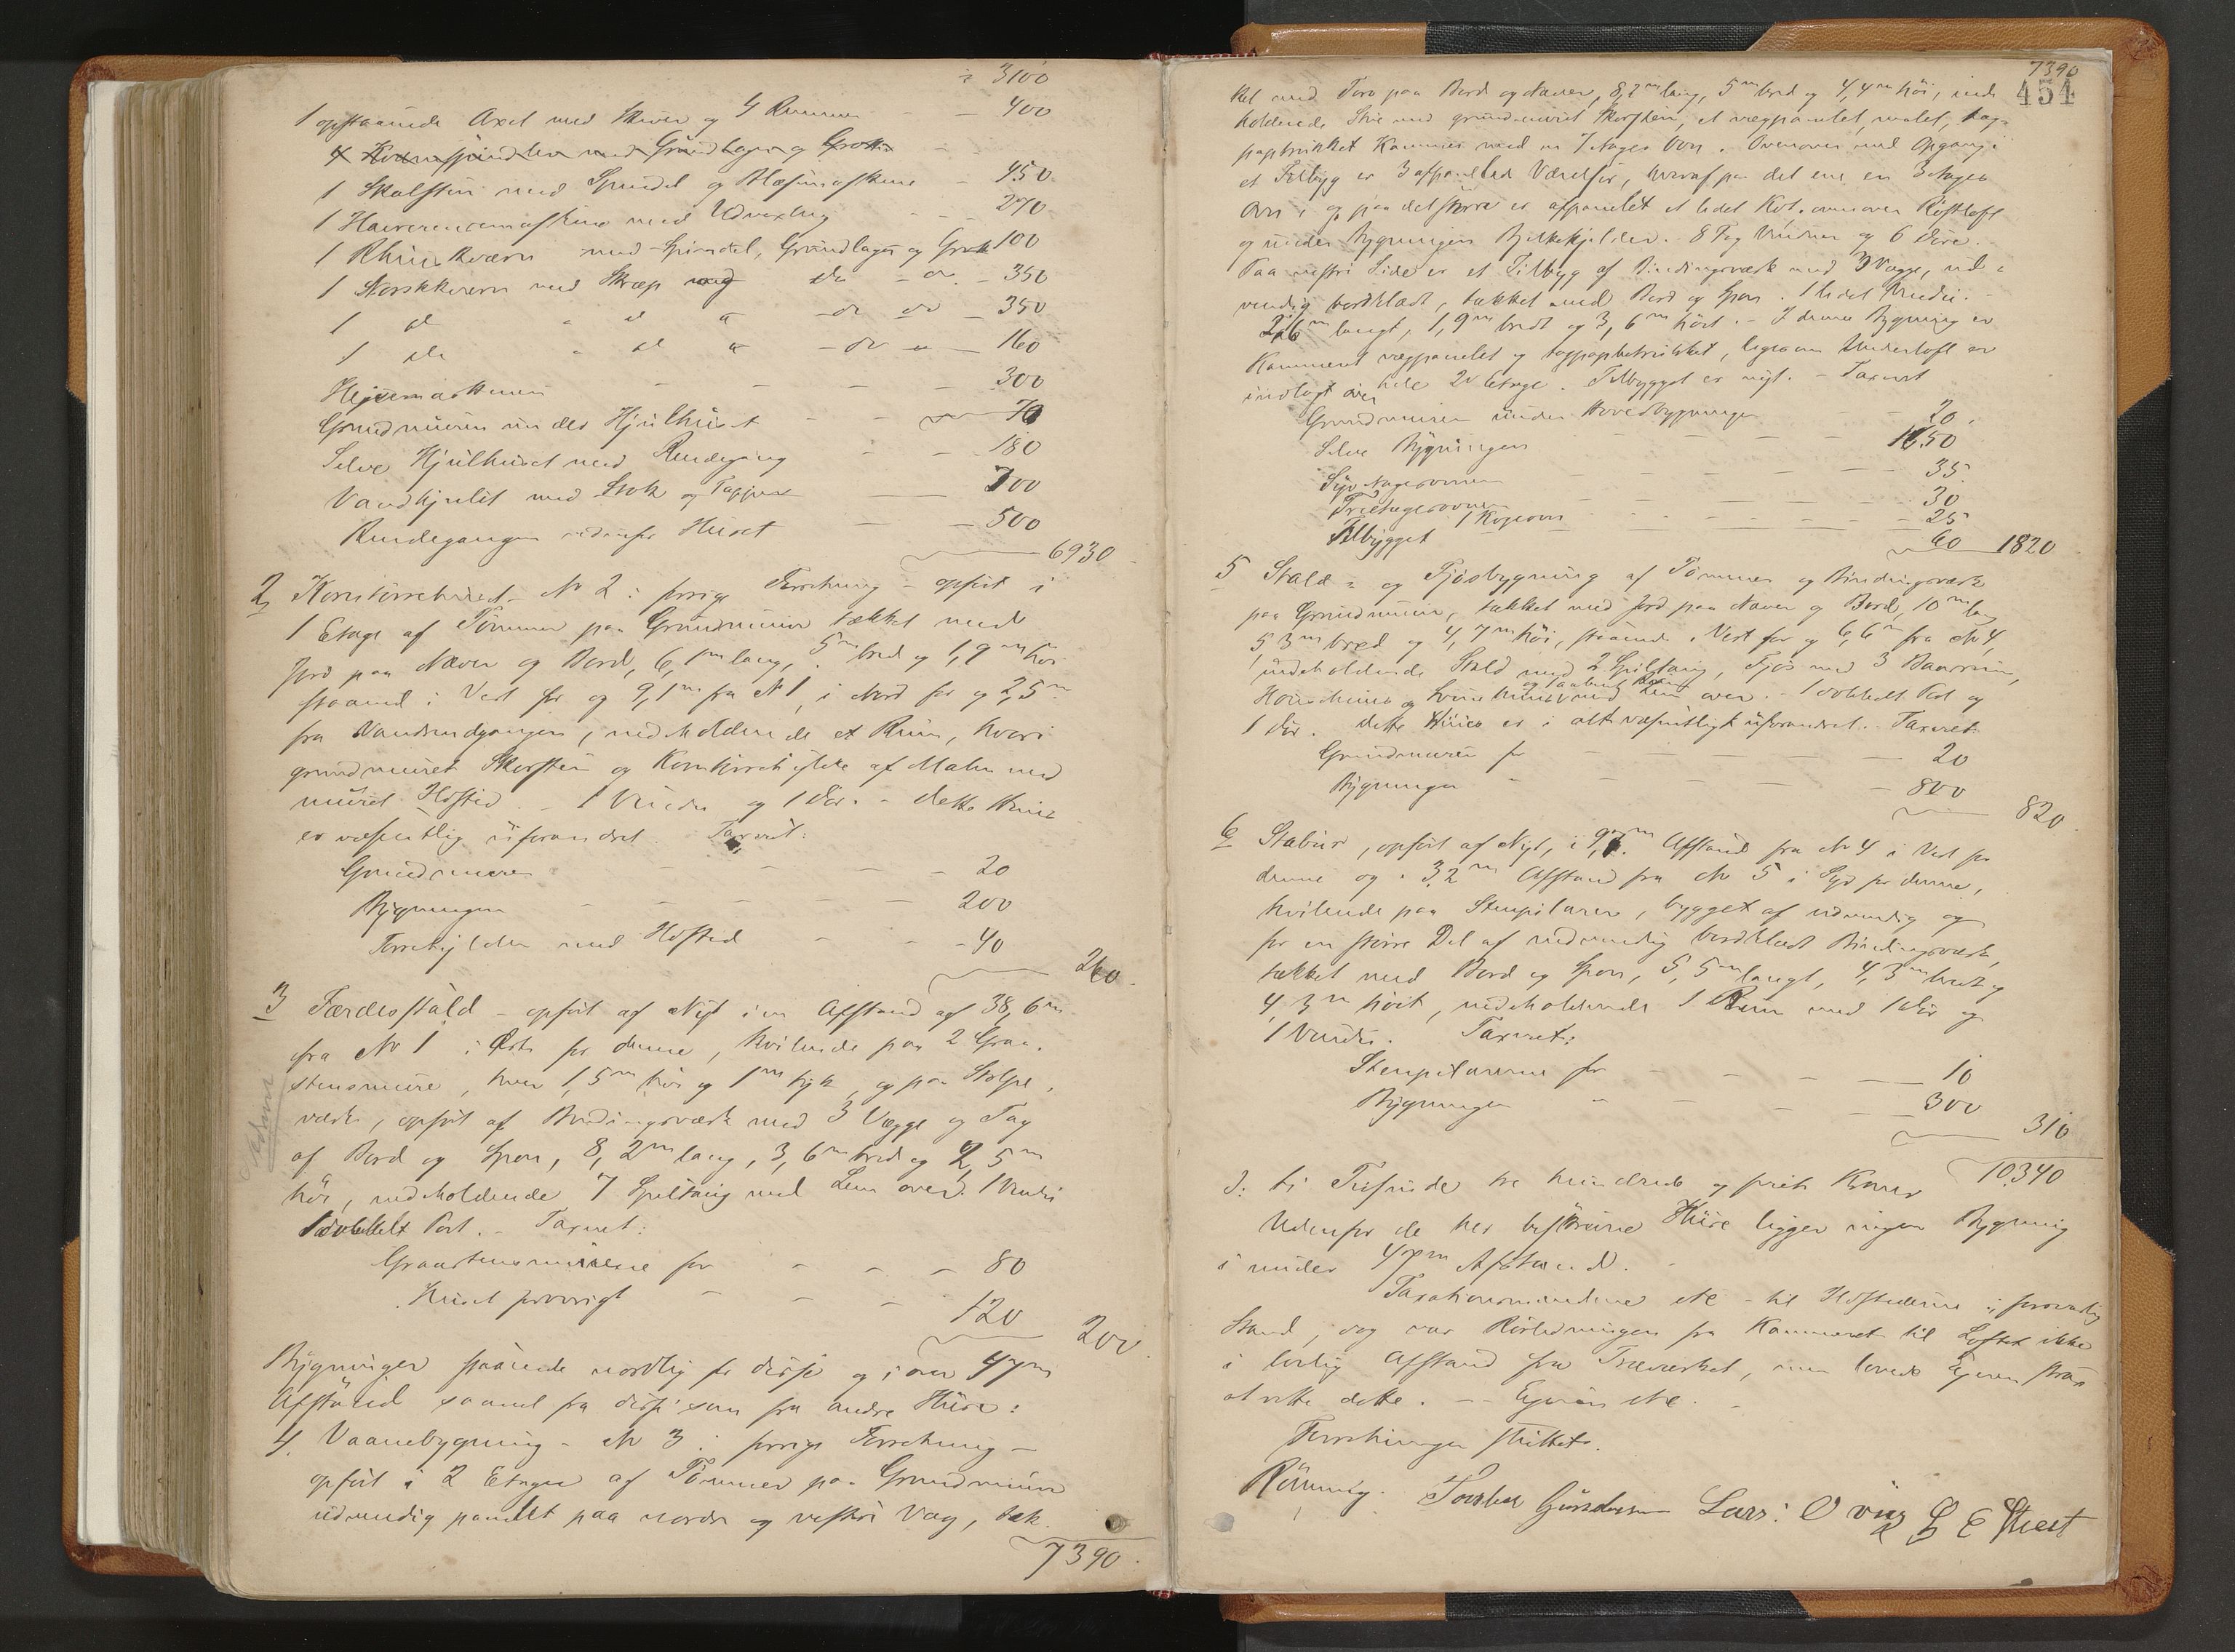 3100
1 opstaaende Axel med Skiver og 4 Remmer - - 400
4 Kværnspindler med Grundlager og Grotter
1 Skalsten med Spindel og Blæsemaskine - 450
1 Havrerensemaskine med Udvexling - - 270
1 Kværn med Spindel, Grundlager og Grotte 100
1 Norskkværn med Skrap og do - do - 350
1 do " do " do do - 350
1 do " do " - do " - 160
Heisemaskinen - - - - - 300
Grundmuren under Hjulhuset - - - 70
Selve Hjulhuset med Rendegang - - 180
Vandhjulet med Stok og Tapper - 700
Rendegangen udenfor Huset - - 500
6930
2 Korntørrehuset - No 2 i forrige Forretning - opført i
1 Etage af Tømmer paa Grundmur tækket med
Jord paa Næver og Bord, 6,1 m lang, 5 m bred og 1,9 m høi
staaende i Vest for og 9,1 m fra No 1, i Nord for og 2,5 m
fra Vandrendgangen, indeholdende et Rum, hvori
grundmuret Skorsten og Korntørrehjelle af Malm med
muret Ildsted. - 1 Vindu og 1 Dør. - Dette Huus
er væsentlig uforandret. Taxeret:
Grundmuren - - - - 20
Bygningen - - - - 200
Tørrehjellen med Ildsted - - - 40
260
3 Færdesstald - opført af Nyt i en Afstand af 38,6 m
fra No 1 i Øst for denne, hvilende paa 2 Graa-
stensmure, hver 1,5 m høi og 1 m tyk, og paa Stolpe-
værk, opført af Bindingsværk med 3 Vægge og Tag
af Bord og Spon, 8,2 m lang, 3,6 m bred og 2,5 m
høi, indeholdende 7 Spiltaug med Lem over. 1 Vindu
1 dobbelt Port. - Taxeret:
Graastensmurene for - - - 80
Huset forøvrigt - - - 120
200
Bygninger staaende nordlig for disse og i over 47 m
Afstand saavel fra disse som fra andre Huse:
4 Vaanebygning - No 3 i forrige Forretning -
opført i 2 Etager af Tømmer paa Grundmur
udvendig panelt paa nordre og vestre Væg, tæk-
7390
7390
454
ket med Torv paa Bord og Næver, 8,2 m lang, 5 m bred og 4,4 m høi, inde-
holdende Stue med grundmuret Skorsten, et væggpanelet, malet, tag-
paptrukket Kammer med en 7 Etages Ovn. Ovenover med Opgang i
et Tilbyg er 3 afpanelede Værelser, hvoraf paa det ene en 3 Etages
Ovn, og paa det større er afpanelet et lidet Kot, ovenover Røstloft
og under Bygningen Bjelkekjelder. 8 Fag Vinduer og 6 Døre.
Paa vestre Side er et Tilbyg af Bindingsværk med 3 Vægge, ud-
vendig bordklædt, tækket med Bord og Spon. 1 lidet Vindu. -
2,6 m langt, 1,9 m bredt og 3,6 m høit. - I denne Bygning er
Kammeret væggpanelet og tagpapbetrukket, ligesom Underloft er
indlagt over hele 2de Etage. Tilbygget er nyt. - Taxeret
Grundmuren under Hovedbygningen - 20
Selve Bygningen - - - - 1650
Syv Etagesovnen - - - - 35
Treetagesovnen - - - - 30
1 Kogeovn - - - - 25
Tilbygget - - - - 60
1820
5 Stald- og Fjøsbygning af Tømmer og Bindingsværk
paa Grundmur, tækket med Jord paa Næver og Bord, 10 m lang
5,3 m bred og 4,7 m høi, staaende i Vest for og 6,6 m fra No 4,
indeholdende Stald med 2 Spiltaug, Fjøs med 3 Baasrum,
Hønsehuus og Svinehuus med Lem over. - 1 dobbelt Port og
1 Dør. Dette Huus er i alt væsentligt uforandret. Taxeret:
Grundmuren for - - - - 20
Bygningen - - - - 800
820
6 Stabur, opført af Nyt, i 9, m Afstand fra No 4 i Vest for
denne og i 3,2 m Afstand fra No 5 i Syd for denne,
hvilende paa Stenpilarer, bygget af udvendig og
for en større Del af indvendig bordklædt Bindingsværk,
tækket med Bord og Spon, 5,5 m langt, 4,3 m bredt og
4,3 m høit, indeholdende 1 Rum med 1 Dør og
1 Vindu. Taxeret:
Stenpilarerne for - - - 10
Bygningen - - - - 300
310
10340
D: ti Tusinde tre hundrede og firti Kroner
Udenfor de her beskrevne Huse ligger ingen Bygning
i under 47 m Afstand.
Taxationsmændene etc - til Ildstederne i forsvarlig
Stand, dog var Rørledningen fra Kammeret til Loftet ikke
i lovlig Afstand fra Træværket, men lovede Ejeren strax
at rette dette. - - Ejeren etc.
Forretningen sluttet.
Rønning. Gundersen Lars: Oving L E Hvest